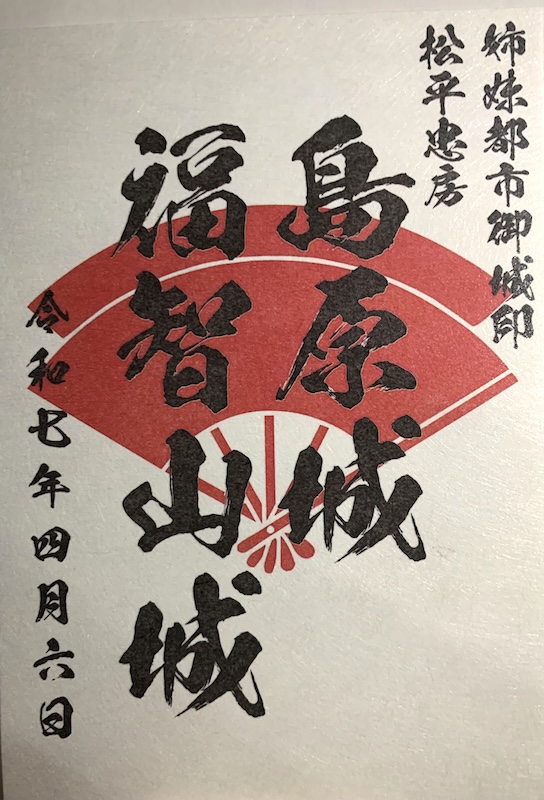 姉妹都市御城印
松平忠房
島原城
福智山城
令和七年四月六日